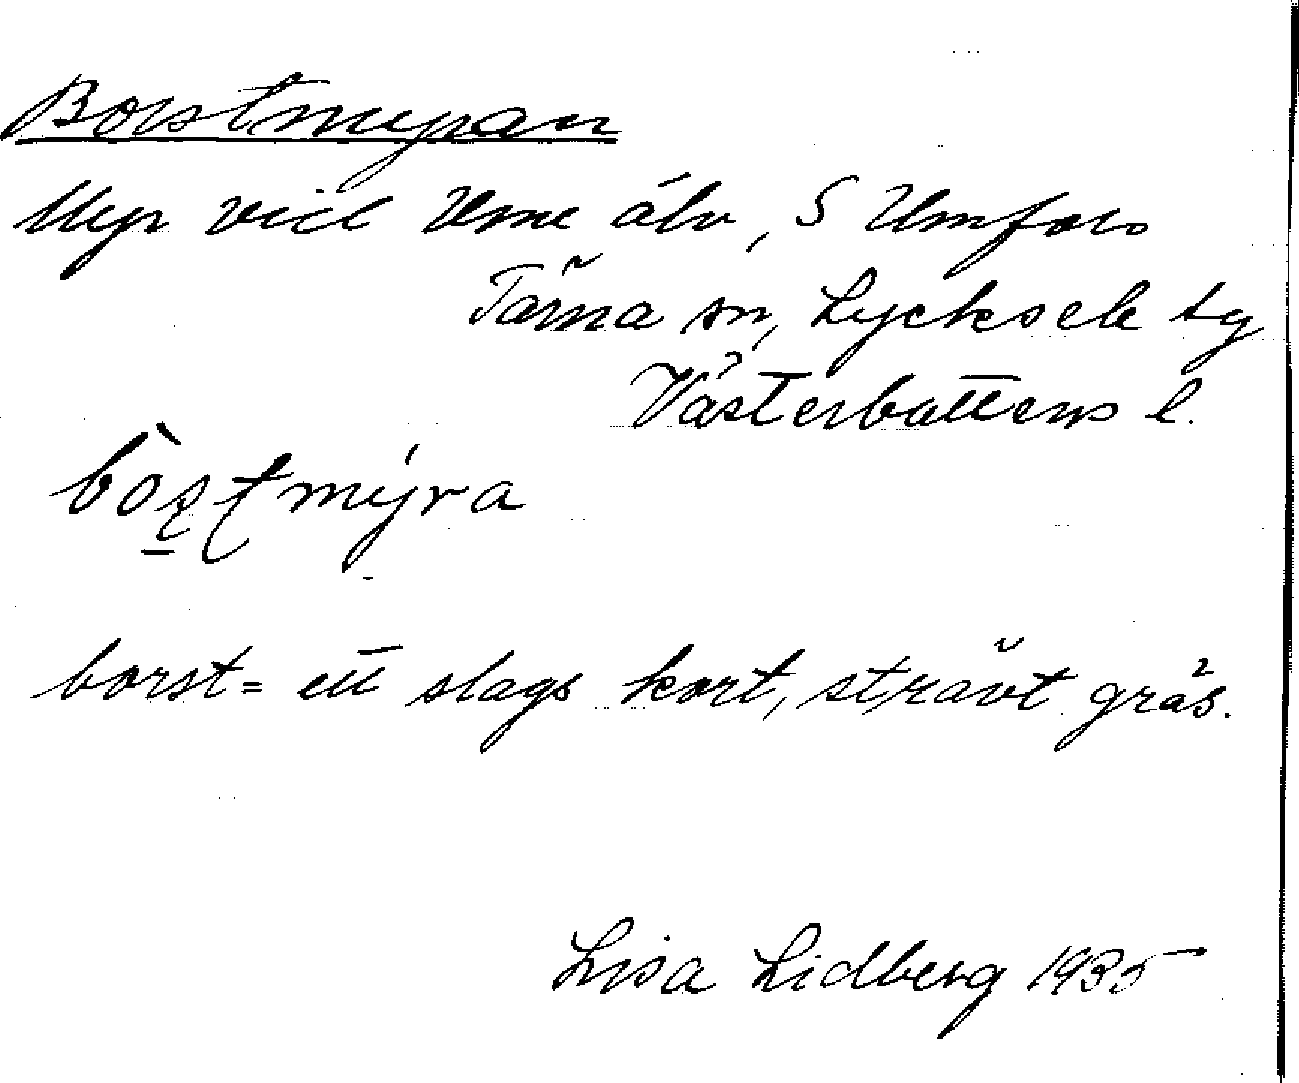 Borstmyran
Myr vid Ume älv, S Umfors
Tärna sn, Lycksele lg
Västerbottens l.
bòʂʈmýra
borst = ett slags kort, strävt gräs.
Lisa Lidberg 1935